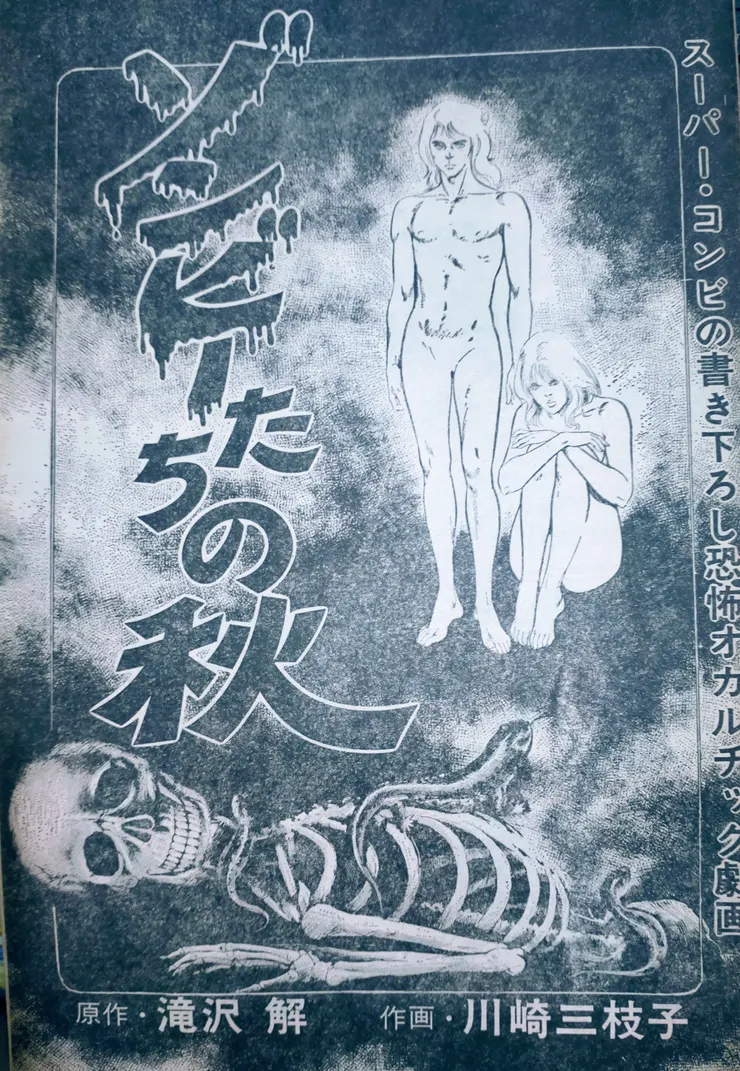 スーパー・コンビの書き下ろし恐怖オカルチック劇画
ゾンビー
たち
の
秋
原作・滝沢 解
作画・川崎三枝子